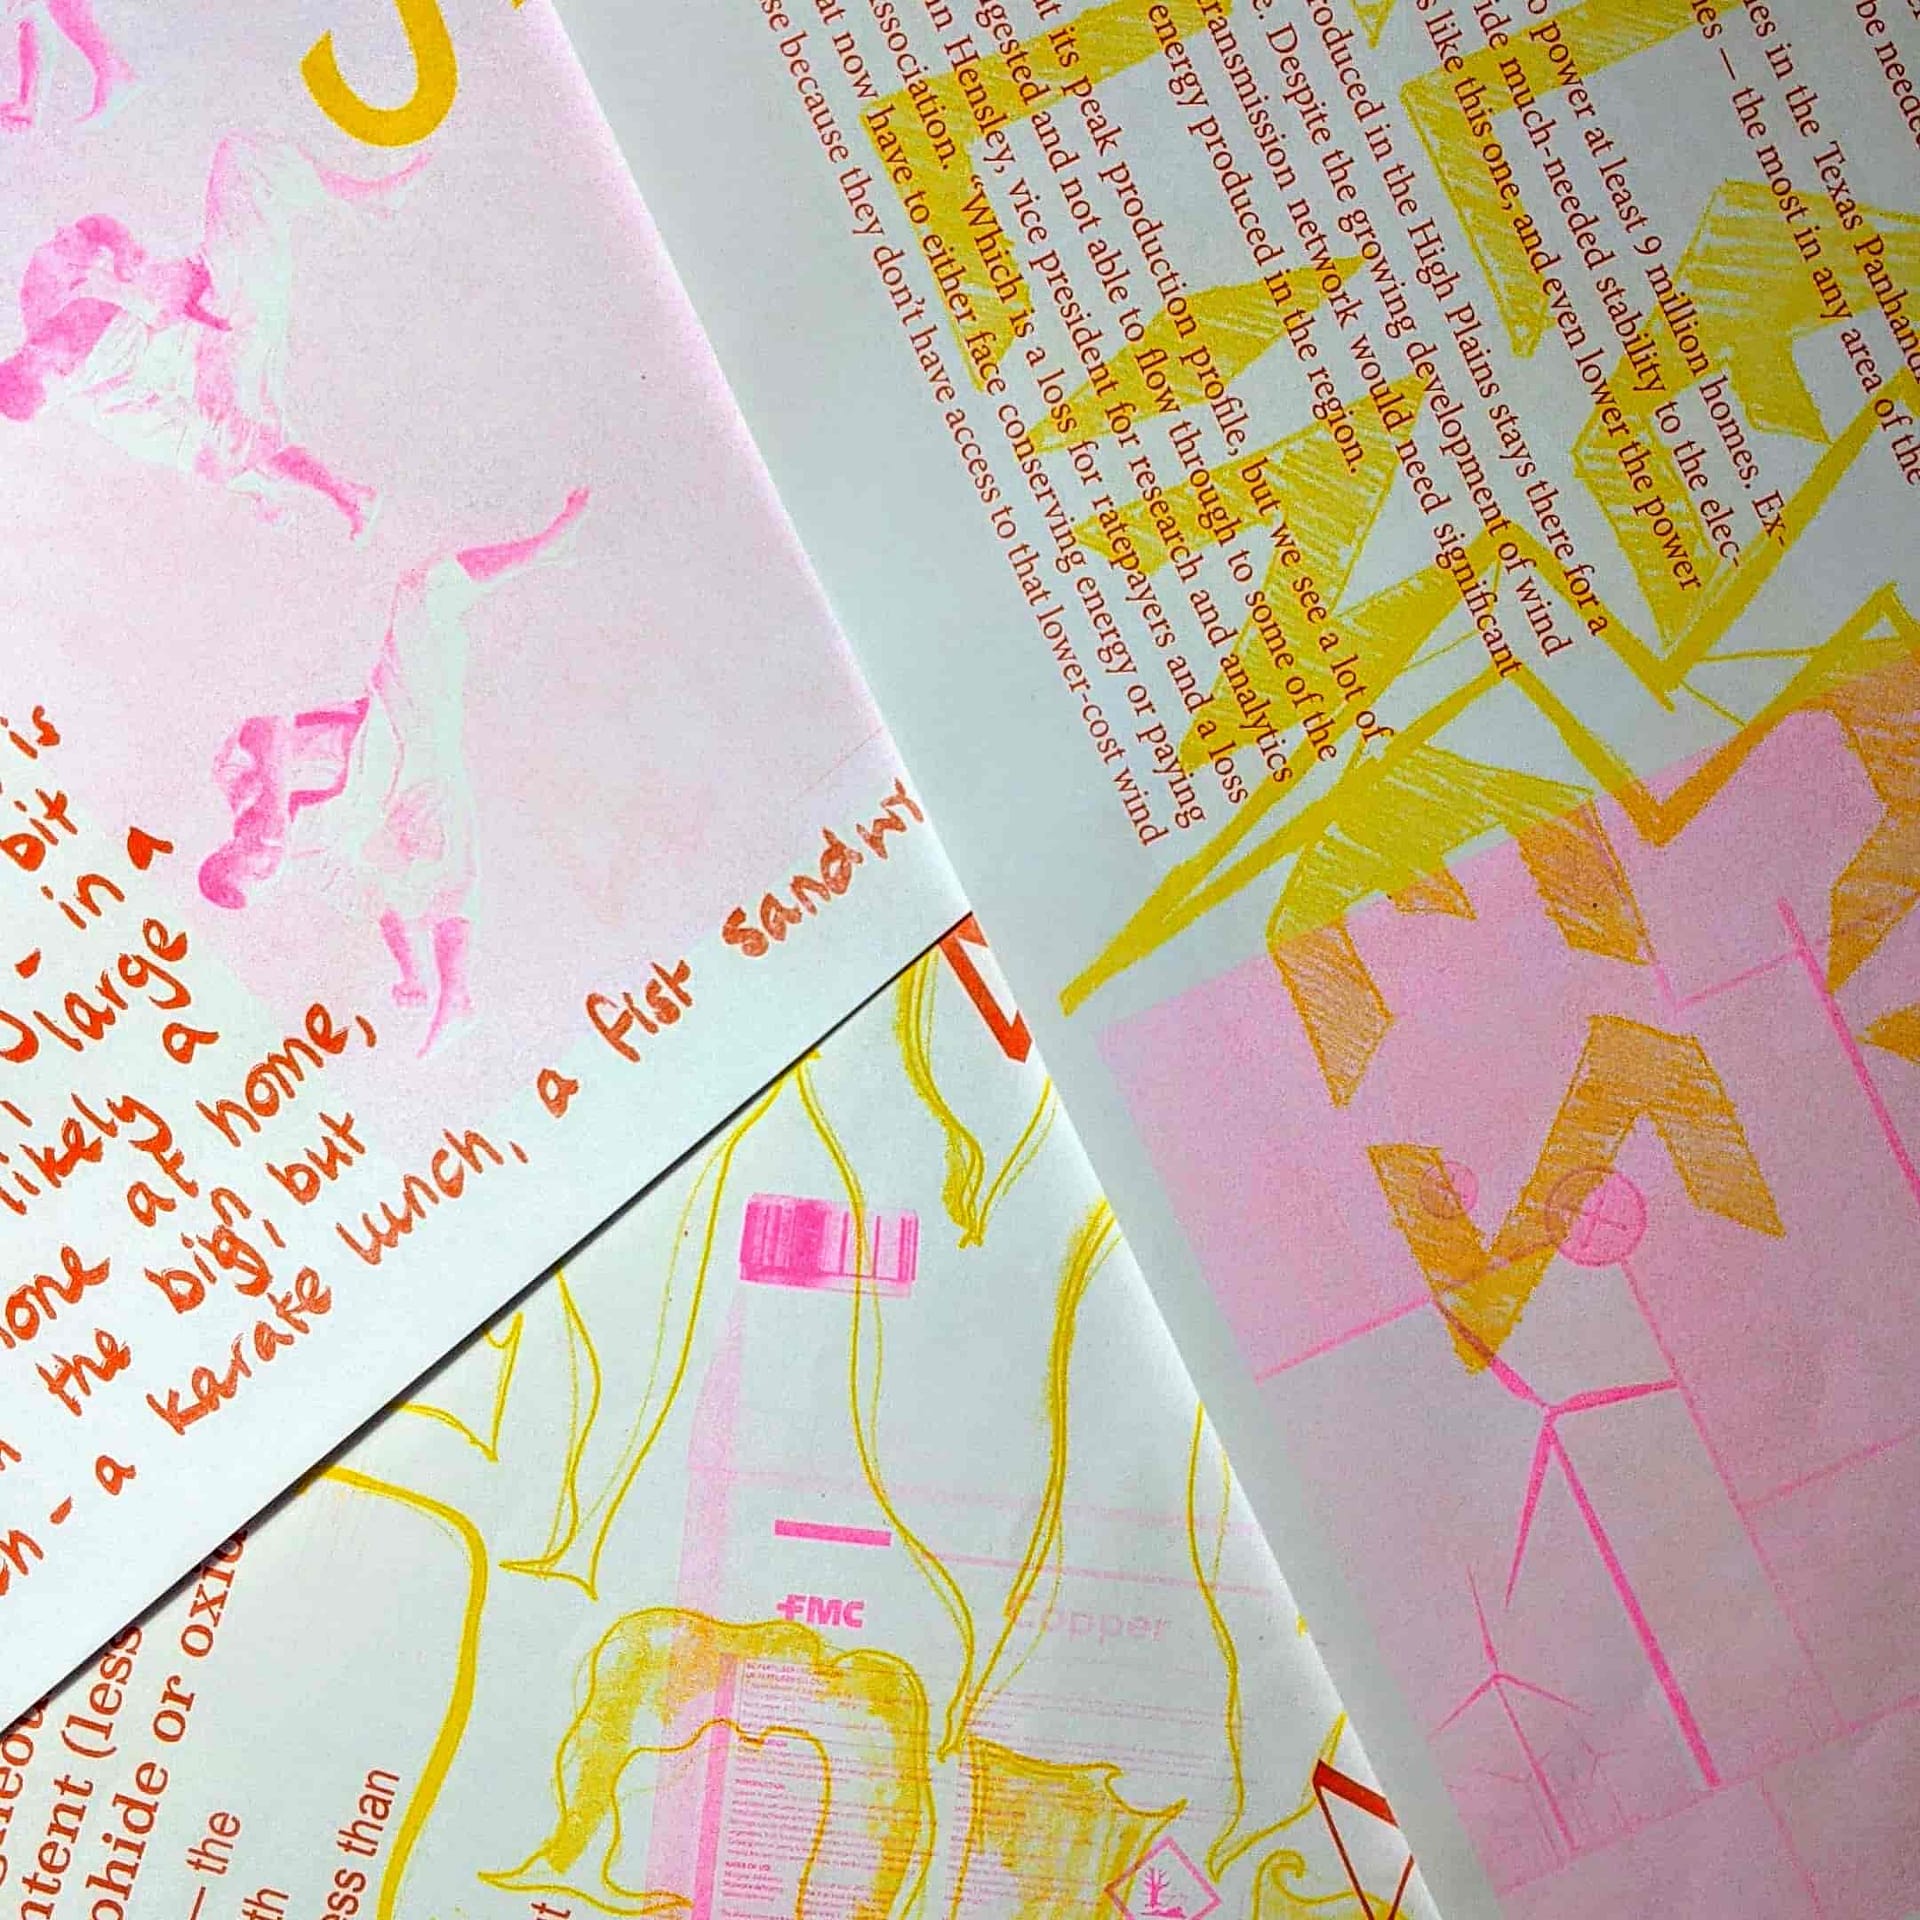 is
bit
- in a
large
likely a
at home,
the big, but
- a karate lunch, a fist sandwi
be needed
in the Texas Panhand
— the most in any area of the
power at least 9 million homes. Ex-
much-needed stability to the elec-
like this one, and even lower the power
roduced in the High Plains stays there for a
e. Despite the growing development of wind
ransmission network would need significant
energy produced in the region.
at its peak production profile, but we see a lot of
ggested and not able to flow through to some of the
nn Hensley, vice president for research and analytics
Association. “Which is a loss for ratepayers and a loss
at now have to either face conserving energy or paying
se because they don’t have access to that lower-cost wind
FMC
Copper
ntent (less
phide or oxid
— the
th
ess than